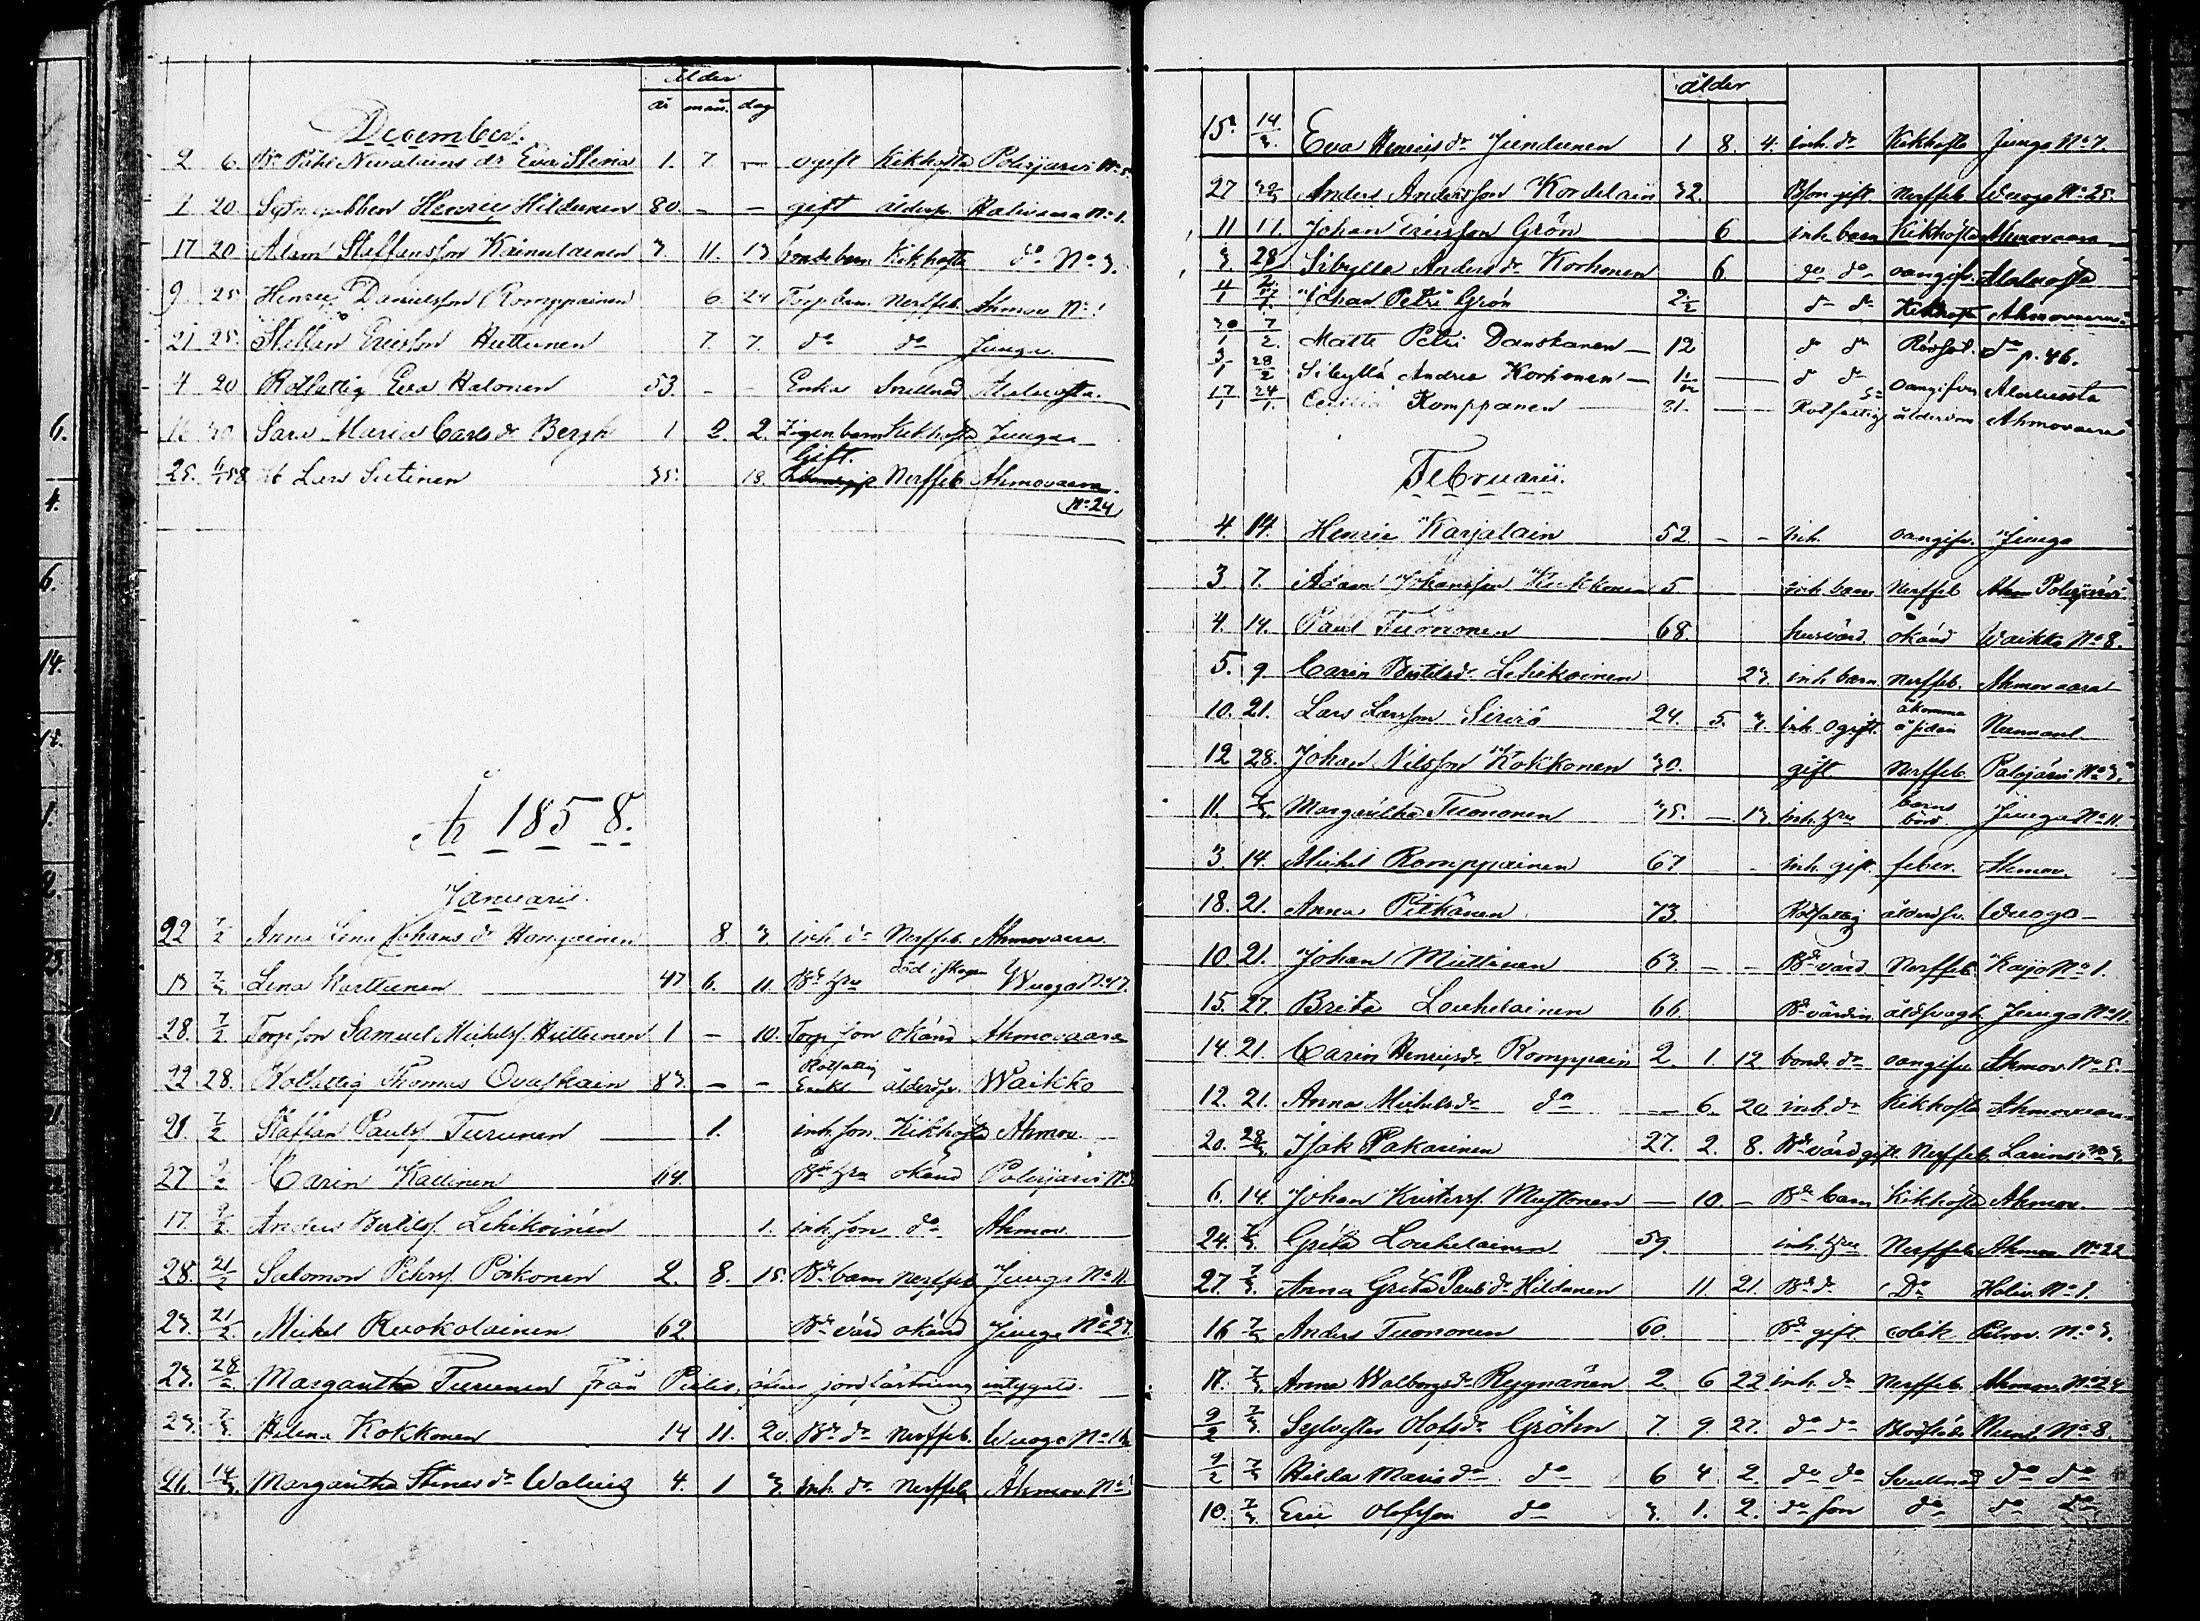 ålder
år mån. dag
December.
2 6. Bd. Påhl Nevalainens dr Eva Stina 1. 7. — ogift Kikhosta Polvijärvi No
1 20. Sytn. gubben Henric Hildunen 80. — — gift ålders. Halivaara No 1.
17 20 Adam Staffansson Kainulainen 3. 11. 13 bondebarn Kikhosta do No 3.
9. 25 Henric Danielsson Romppainen 6. 24 Torp barn Nerffeb. Ahmov. No 1
21 25. Staffan Ericsson Huttunen 7. 7. do do Junga
4 20 Rotfattig Eva Halonen 53. — — Enka Svullnad Alaluosta.
16 30 Sara Maria Carls dr Bergh 1 2. 2. Zigen. barn Kikhosta Junga
25. 6/1 58 Lars Sutinen 35. 18. Gift. Nerffeb. Ahmovaara.
No 24
År 1858.
Januarii.
22 7/2 Anna Lena Johans dr Hongainen 8. 3. inh. dr Nerffeb. Ahmovaara.
13 7/3 Lena Karttunen 47 6. 11. Bd hru död i skogen Wuoga No 17.
28. 7/2 Torp son Samuel Michelss. Huttunen 1 — 10. Torp son okänd Ahmovaara
22 28. Rotfattig Thomas Ovaskain 83. — — Rotfattig Enkl. åldersv. Waikko
21. 7/2 Staffan Paulss. Turunen 1. inh. son Kikhosta Ahmov.
27 9/2 Carin Kallinen 64. Bd hru okänd Polvijärvi No
17. 9/2 Anders Bertilss. Lehikoinen 1. inh. son do Ahmov.
28. 21/2 Salomon Petriss. Poikonen 2. 8. 15. Bd. barn Nerffeb Junga No 11.
23. 21/2 Mickel Ruokolainen 62 Bd värd okänd Junga No 27.
23. 28/2 Margaretha Turunen från Pielis, jordfästning intygats.
23. 7/3 Helena Kokkonen 14 11. 20. Bd dr Nerffeb. Wuoga No 16
26. 14/3 Margaretha Stinas dr Walius 4. 1 3 inh. dr Nerffeb Ahmov. No
ålder
15. 14/3. Eva Henrics dr Jundunen 1 8. 4. inh. dr Kikhosta Junga No 7.
27 Anders Andersson Kordelain 32. Bson gift Nerffeb. Wuoga No 25.
11 11. Johan Ericsson Grön 6 inh. barn Kikhosta Ahmovaara
3 28 Sibylla Anders dr Korhonen 6 do do oangifv. Alaluosta
4/1 Johan Petri Grön 2 1/2 do do Kikhosta Ahmovaara
30/1 7/2. Matts Petri Danskanen — 12 do do Rödsot. do p. 46.
3/1 28/2 Sibylla Andrea Korhonen — do do oangifven Alaluosta
17/1 24/1. Cecilia Romppanen 81. — Rotfattig ålderdom Ahmovaara
Februarii.
4. 14. Henric Karjalain 52 — — inh. oangifv. Junga
3 7. Adam Johansson Kukkonen 5 inh. barn Nerffeb Polvijärvi
4. 14. Paul Tuononen 68. husvärd. okänd Waikko No 8.
5. 9 Carin Bertilsdr Lehikoinen 23. inh. barn Nerffeb. Ahmovaara
10. 21. Lars Larsson Sirviö 24. 5. 3. inh. ogift. åkomma å sidan
12 28. Johan Nilsson Kokkonen 30. gift Nerffeb. Palojärvi No 3.
11. 7/3. Margaretha Tuononen 35. — 13. inh. hru barns börd Junga No 11.
3. 14. Michel Romppainen 67 inh. gift. feber. Ahmov.
18. 21. Anna Pitkänen 73. Rotfattig ålderdsv. Wuoga —
10. 21. Johan Miettinen 63 — — Bd värd Nerffeb. Kajo No 1.
15. 27. Brita Louhelainen 66. Bd värdin. åldsvagh. Junga No 11.
14. 21. Carin Henricsdr Romppain 2. 1. 12. bonde dr oangifv Ahmov. No 5.
12. 21. Anna Michelsdr do — 6. 20. inh. dr Kikhosta Ahmovaara
20. 28/3. Isak Pakarinen 27. 2. 8. Bd värd gift. Nerffeb. No 3.
6. 14. Johan Kristerss. Mustonen — 10. — Bd. barn Kikhosta Ahmov.
24. 7/3. Greta Louhelainen 59. inh. hru Nerffeb Ahmov No 22
27. 7/3. Anna Greta Pauls dr Hildunen 11. 21. Bd dr Do Haliv. No 1.
16 7/3 Anders Tuononen 60. Bd gift colik No 3.
17. 7/3. Anna Walborgs dr Ryynänen 2. 6 22 inh. dr Nerffeb. Ahmov. No 24
9/2 7/3. Sylvester Olofsdr Gröhn 7. 9. 27. do do No 8.
9/2 7/3 Hilda Maria dr do 6 4. 2. do do Svullnad do do
10. 7/3. Eric Olofsson do 3. 1. 2. do son do do do
6.
4.
6.
14.
1.
2